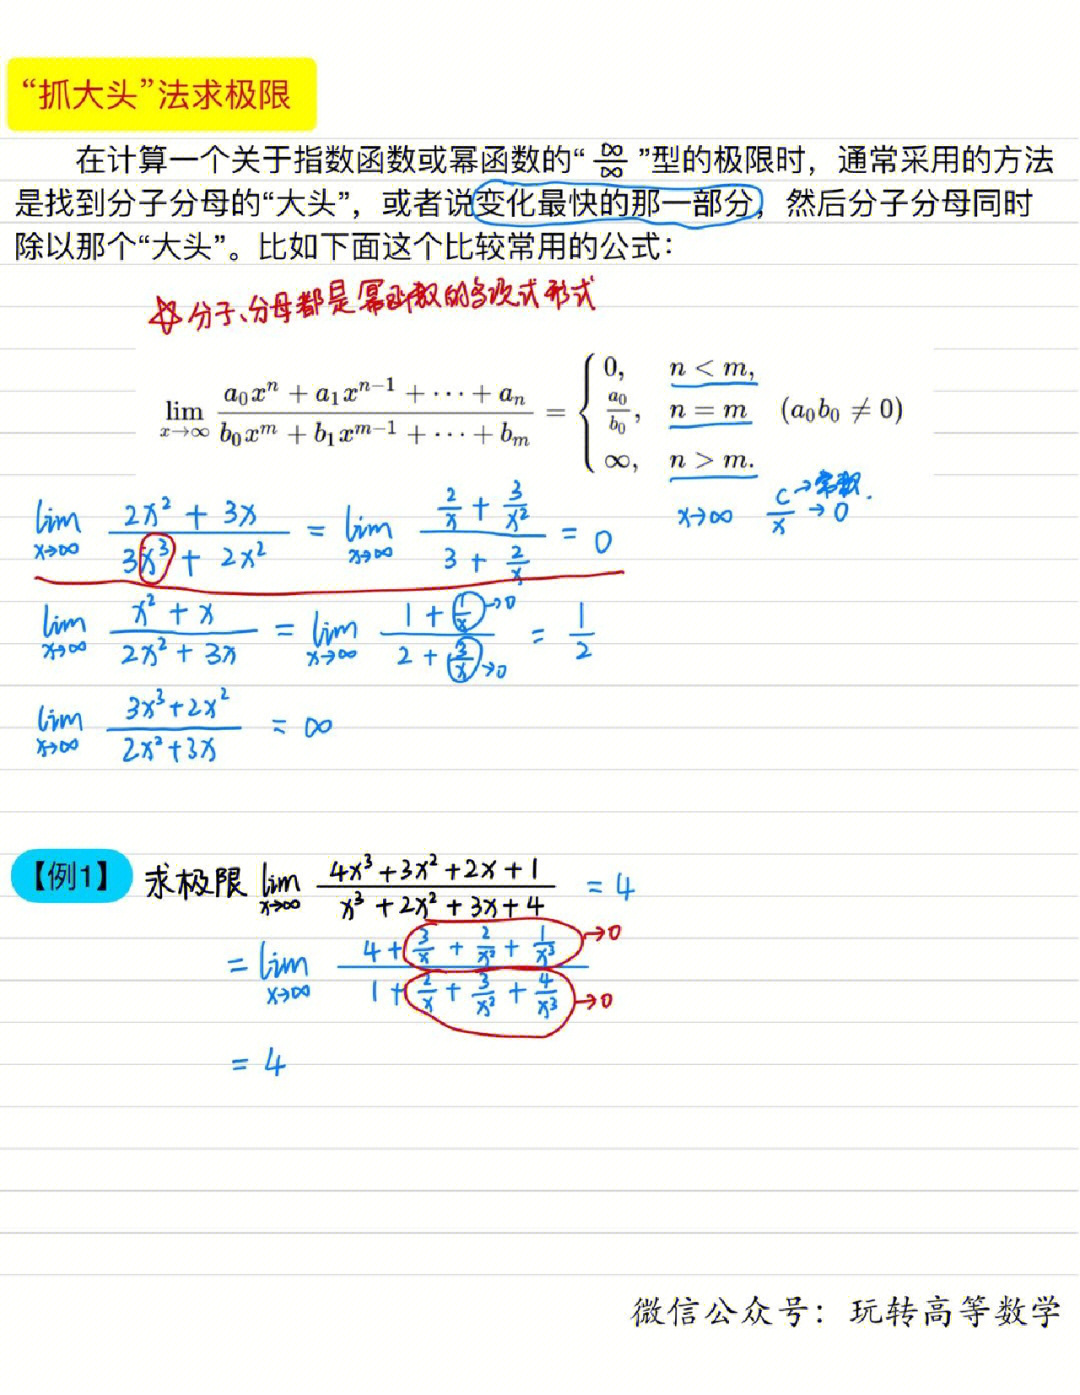 “抓大头”法求极限
在计算一个关于指数函数或幂函数的“∞/∞”型的极限时，通常采用的方法
是找到分子分母的“大头”，或者说变化最快的那一部分，然后分子分母同时
除以那个“大头”。比如下面这个比较常用的公式：
☆分子、分母都是幂函数的多项式形式
lim x→∞ (a₀xⁿ + a₁xⁿ⁻¹ + ··· + aₙ)/(b₀xᵐ + b₁xᵐ⁻¹ + ··· + bₘ) = { 0, n < m, a₀/b₀, n = m (a₀b₀ ≠ 0) ∞, n > m.
x→∞ C/x → 0 C→常数.
lim x→∞ (2x² + 3x)/(3x³ + 2x²) = lim x→∞ (2/x + 3/x²)/(3 + 2/x) = 0
lim x→∞ (x² + x)/(2x² + 3x) = lim x→∞ (1 + 1/x →0)/(2 + 3/x →0) = 1/2
lim x→∞ (3x³+2x²)/(2x²+3x) = ∞
【例1】 求极限 lim x→∞ (4x³+3x²+2x+1)/(x³+2x²+3x+4) = 4
= lim x→∞ (4 + 3/x + 2/x² + 1/x³ →0)/(1 + 2/x + 3/x² + 4/x³ →0)
= 4
微信公众号：玩转高等数学